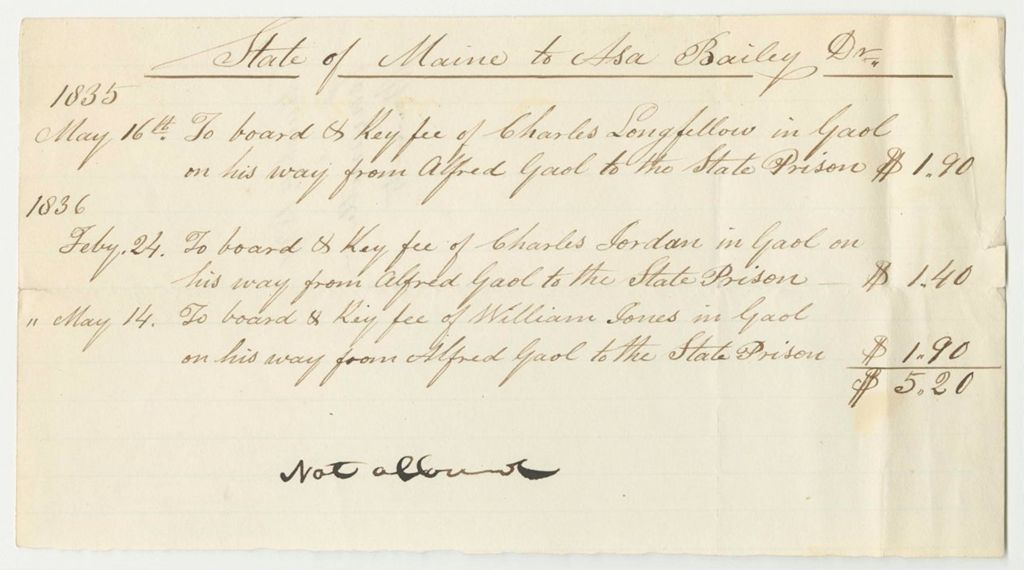 State of Maine to Asa Bailey Dr,,
1835
May 16th. To board & Key fee of Charles Longfellow in Gaol
on his way from Alfred Gaol to the State Prison $ 1.90
1836
Feby. 24. To board & Key fee of Charles Jordan in Gaol on
his way from Alfred Gaol to the State Prison — $ 1.40
" May 14. To board & Key fee of William Jones in Gaol
on his way from Alfred Gaol to the State Prison $ 1.90
$ 5.20
Not allowed